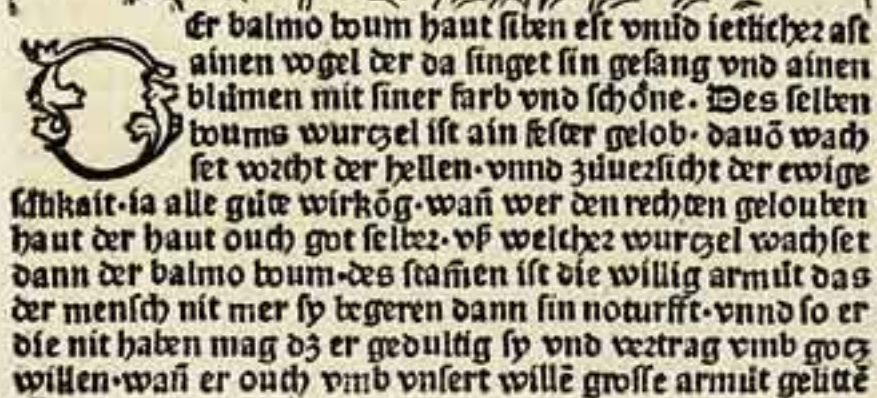 DEr balmo boum haut siben est vnnd ietlicher ast
ainen vogel der da singet sin gesang vnd ainen
blůmen mit siner farb vnd schöne. Des selben
boums wurczel ist ain fester gelob. dauõ wach
set vorcht der hellen.vnnd zůuersicht der ewige
sälikait.ia alle gůte wirkõg.wañ wer den rechten gelouben
haut der haut ouch got selber.vß welcher wurczel wachset
dann der balmo boum.des stam̃en ist die willig armůt das
der mensch nit mer sy begeren dann sin noturfft.vnnd so er
die nit haben mag dʒ er gedultig sy vnd vertrag vmb gocz
willen.wañ er ouch vmb vnsert willẽ grosse armůt gelittẽ